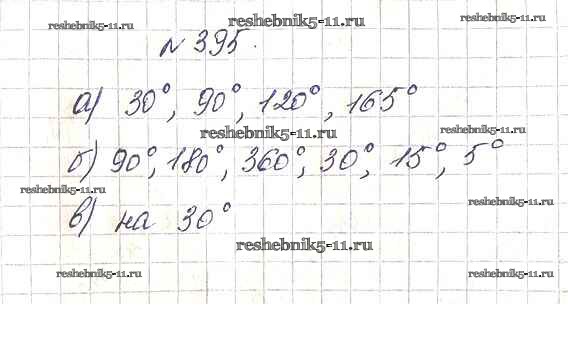 reshebnik5-11.ru reshebnik5-11.ru reshebnik5-11.ru
№ 395.
reshebnik5-11.ru reshebnik5-11.ru
а) 30°, 90°, 120°, 165°
reshebnik5-11.ru reshebnik5-11.ru
б) 90°, 180°, 360°, 30°, 15°, 5°
reshebnik5-11.ru reshebnik5-11.ru
в) на 30°
reshebnik5-11.ru
reshebnik5-11.ru reshebnik5-11.ru